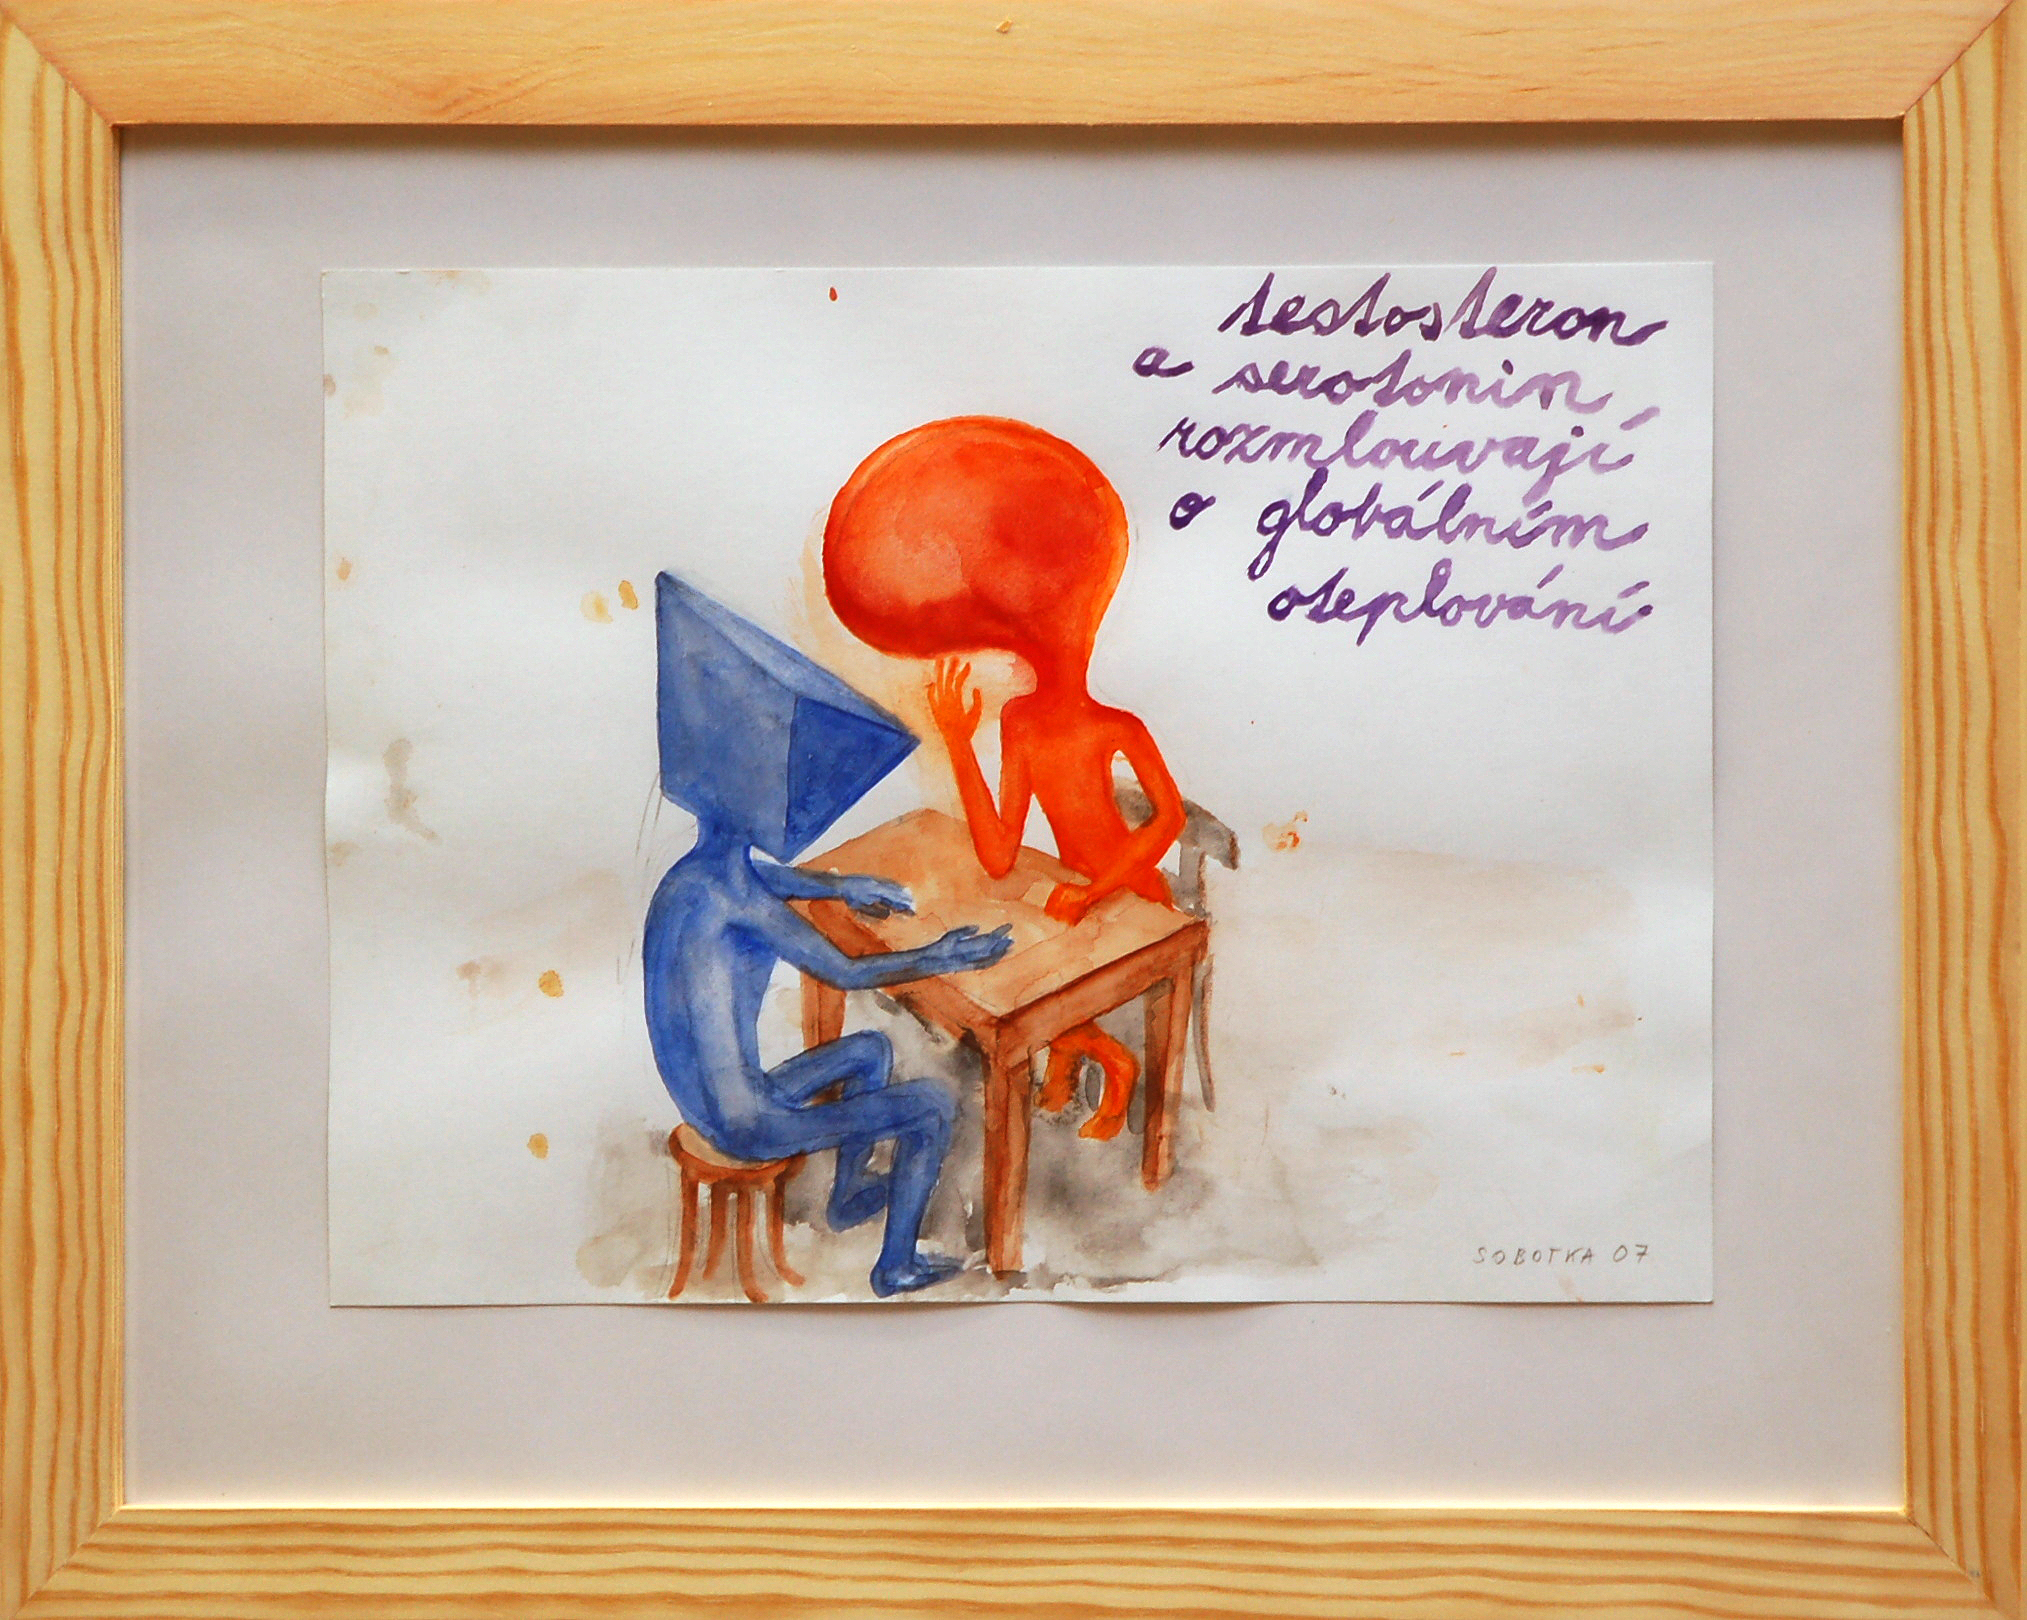 testosteron
a serotonin
rozmlouvají
o globálním
oteplování
SOBOTKA 07